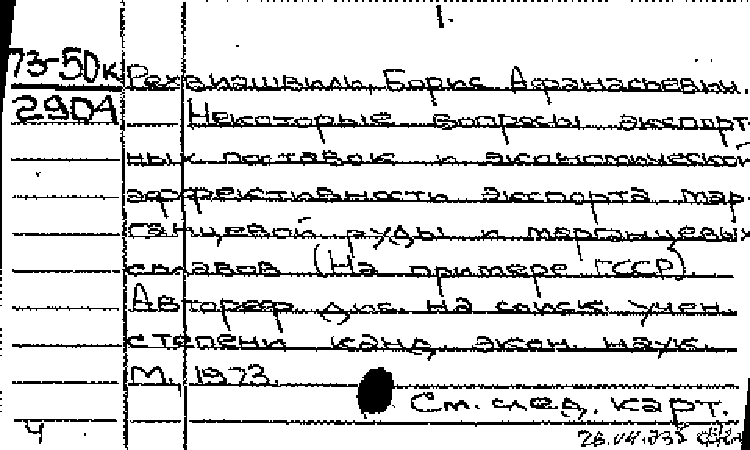 1.
73-50к Рехвиашвили, Борис Афанасьевич.
2904 Некоторые вопросы экспорт-
ных поставок и экономической
эффективности экспорта мар-
ганцевой руды и марганцевых
сплавов (На примере ГССР).
Автореф. дис. на соиск. учен.
степени канд. экон. наук.
М., 1973.
См. след. карт.
4